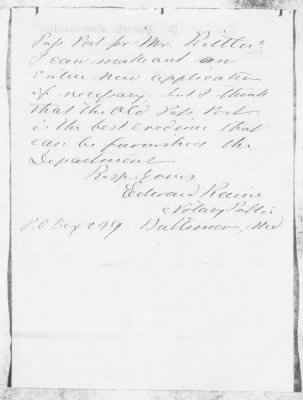 Pass Port for Mr. Rittler.
I can make out an
Entire New application
if necessary, but I think
that the Old Pass Port
is the best evidence that
can be furnished the
Department
Resp. Yours
Edward Raine
Notary Public
P.O Box 249 Baltimore, Md